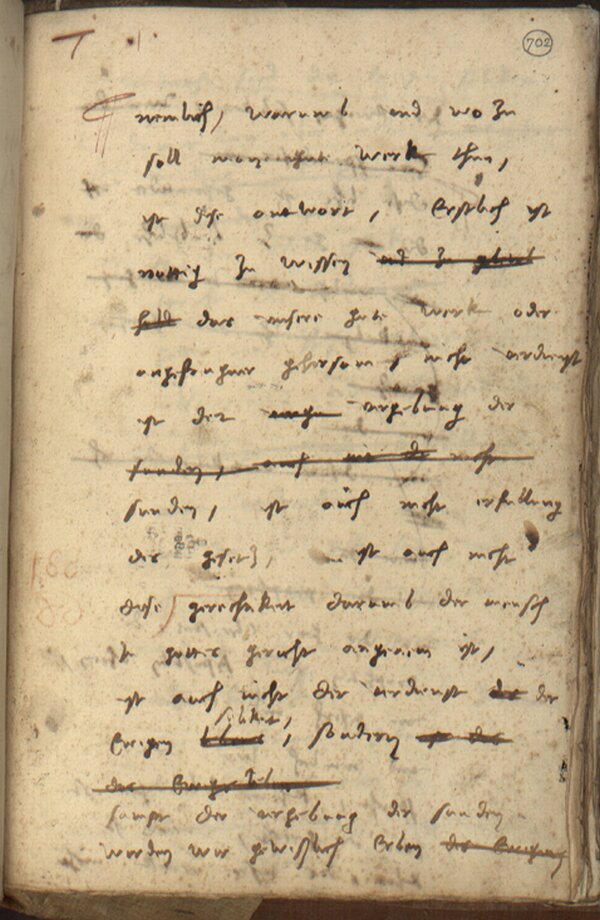 702
nemlich, warumb und wo zu
soll man gute werk thun,
ist dise antwort, Erstlich ist
nottig zu wissen und zu
das unsere gute werk oder
angefangner gehorsam, nicht verdienst
ist der vergebung der
sunden, auch nicht
sunden, ist auch nicht erfullung
des gesetz, ist auch nicht
dise gerechtikeit darumb der mensch
gottes gericht angenem ist,
ist auch nicht der verdienst der
selikeit,
Ewigen, sondern
das Ewige leben
sampt der vergebung der sunden
werden wir gewisslich Erben des Ewigen